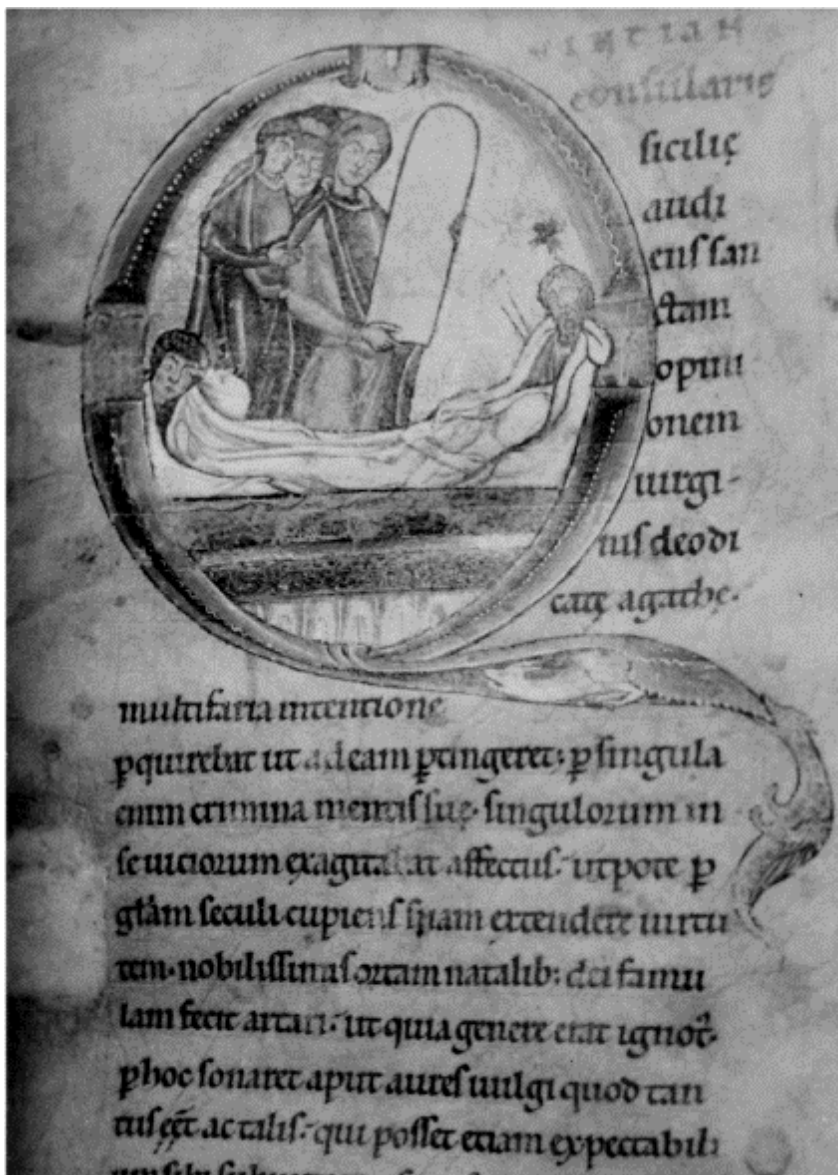 VINTIAN
conſularis
ſicilię
audi
enſ ſan
ctam
opini
onem
uirgi-
niſ deodi
catę agathę.
multifaria intentione
ꝑquirebat ut ad eam ꝑtingeret; ꝑ ſingula
enim crimina mentiſ ſuę. ſingulorum in
ſe uiciorum exagitabat affectuſ. utpote ꝑ
gl̄am ſeculi cupienſ ſuam extendere uirtu
tem. nobiliſſimaſ ortam natalib; dei famu
lam fecit artari. ut quia genere erat ignot᷒.
ꝑ hoc ſonaret aput aureſ uulgi quod tan
tuſ eēt ac taliſ. qui poſſet etiam expectabili